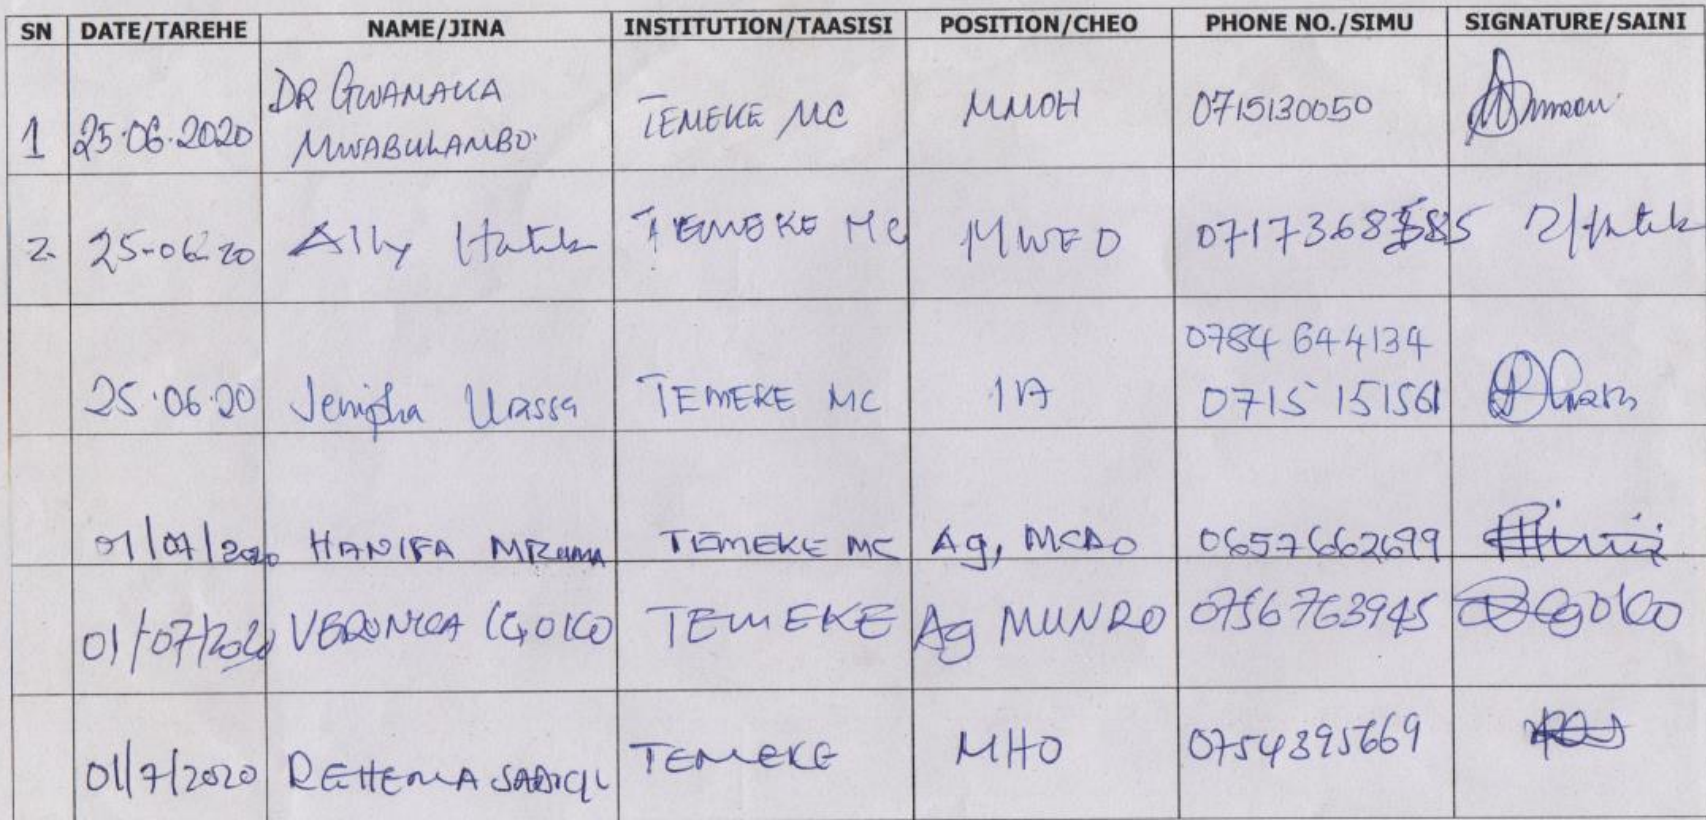 SN DATE/TAREHE NAME/JINA INSTITUTION/TAASISI POSITION/CHEO PHONE NO./SIMU SIGNATURE/SAINI
1 25.06.2020 DR GWAMAKA MWABULAMBO TEMEKE MC MMOH 0715130050
2. 25-06-20 Ally Hatibu TEMEKE MC MWEO
25.06.20 Jenipha Urassa TEMEKE MC IA 0784 644134
0715 151561
01/07/2020 HANIFA MZUMA TEMEKE MC Ag, MCDO 0657662699
01/07/2020 VERONICA TEMEKE Ag MUNRO 0756763945
01/7/2020 REHEMA SADICK TEMEKE MHO 0754395669